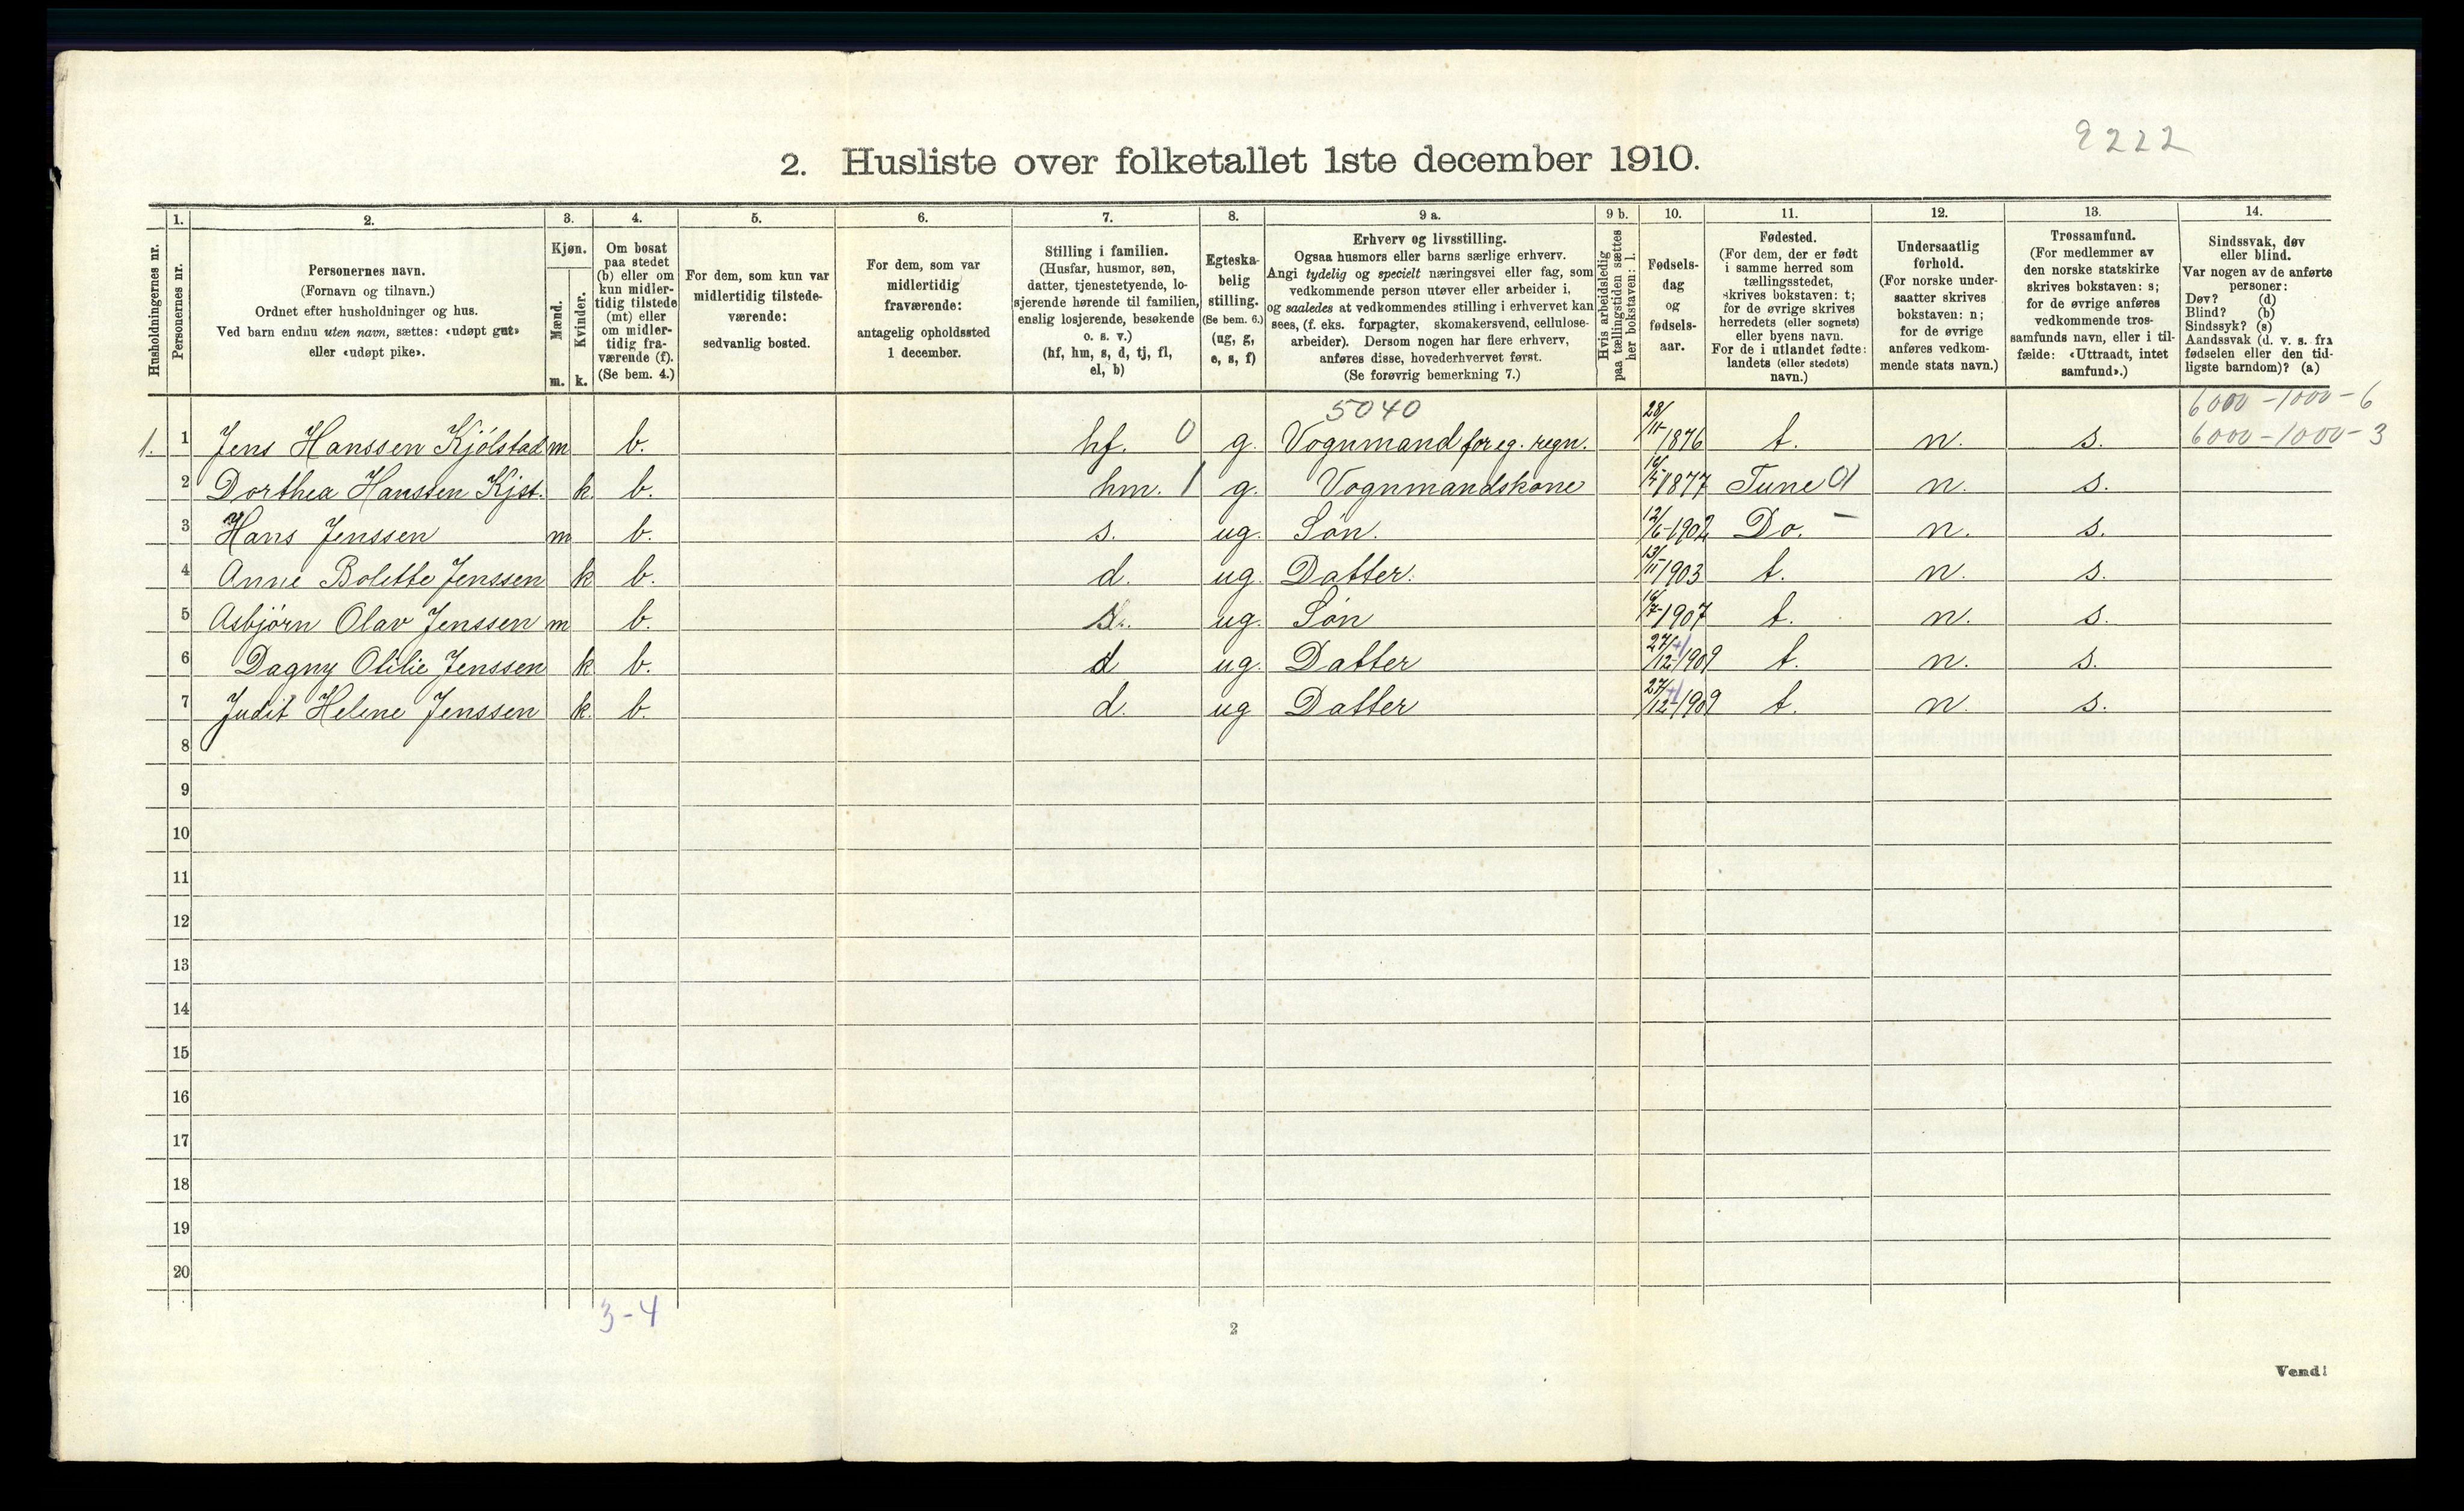 2222
2. Husliste over folketallet 1ste december 1910.
Husholdningernes nr.
1.
Personernes nr.
2.
Personernes navn.
(Fornavn og tilnavn.)
Ordnet efter husholdninger og hus.
Ved barn endnu uten navn, sættes: «udøpt gut»
eller «udøpt pike».
3.
Kjøn.
Mænd.
Kvinder.
m. k.
4.
Om bosat
paa stedet
(b) eller om
kun midler-
tidig tilstede
(mt) eller
om midler-
tidig fra-
værende (f).
(Se bem. 4.)
5.
For dem, som kun var
midlertidig tilstede-
værende:
sedvanlig bosted.
6.
For dem, som var
midlertidig
fraværende:
antagelig opholdssted
1 december.
7.
Stilling i familien.
(Husfar, husmor, søn,
datter, tjenestetyende, lo-
sjerende hørende til familien,
enslig losjerende, besøkende
o. s. v.)
(hf, hm, s, d, tj, fl,
el, b)
8.
Egteska-
belig
stilling.
(Se bem. 6.)
(ug, g,
e, s, f)
9 a.
Erhverv og livsstilling.
Ogsaa husmors eller barns særlige erhverv.
Angi tydelig og specielt næringsvei eller fag, som
vedkommende person utøver eller arbeider i,
og saaledes at vedkommendes stilling i erhvervet kan
sees, (f. eks. forpagter, skomakersvend, cellulose-
arbeider). Dersom nogen har flere erhverv,
anføres disse, hovederhvervet først.
(Se forøvrig bemerkning 7.)
9 b.
Hvis arbeidsledig
paa tællingstiden sættes
her bokstaven: l.
10.
Fødsels-
dag
og
fødsels-
aar.
11.
Fødested.
(For dem, der er født
i samme herred som
tællingsstedet,
skrives bokstaven: t;
for de øvrige skrives
herredets (eller sognets)
eller byens navn.
For de i utlandet fødte:
landets (eller stedets)
navn.)
12.
Undersaatlig
forhold.
(For norske under-
saatter skrives
bokstaven: n;
for de øvrige
anføres vedkom-
mende stats navn.)
13.
Trossamfund.
(For medlemmer av
den norske statskirke
skrives bokstaven: s;
for de øvrige anføres
vedkommende tros-
samfunds navn, eller i til-
fælde: «Uttraadt, intet
samfund».)
14.
Sindssvak, døv
eller blind.
Var nogen av de anførte
personer:
Døv? (d)
Blind? (b)
Sindssyk? (s)
Aandssvak (d. v. s. fra
fødselen eller den tid-
ligste barndom)? (a)
5040 6000-1000-6
1. 1 Jens Hanssen Kjólstad m b. hf. 0 g. Vognmand for eg. regn. 28/11-1876 t. n. s. 6000-1000-3
2 Dorthea Hanssen Kjst. k. b. hm. 1 g. Vognmandskone 1877 Tune 01 n. s.
3 Hans Jenssen m b. s. ug. Sön. 12/6-1902 Do. - n. s.
4 Anne Bolette Jenssen k b. d. ug. Datter. 13/11-1903 t. n. s.
5 Asbjórn Olav Jenssen m b. s. ug. Sön 16/7-1907 t. n. s.
6 Dagny Otilie Jenssen k. b. d ug. Datter 27/12-1909 t. n. s.
7 Judit Helene Jenssen k. b. d. ug Datter 27/12-1909 t. n. s.
8
9
10
11
12
13
14
15
16
17
18
19
20
3-4
2
Vend!